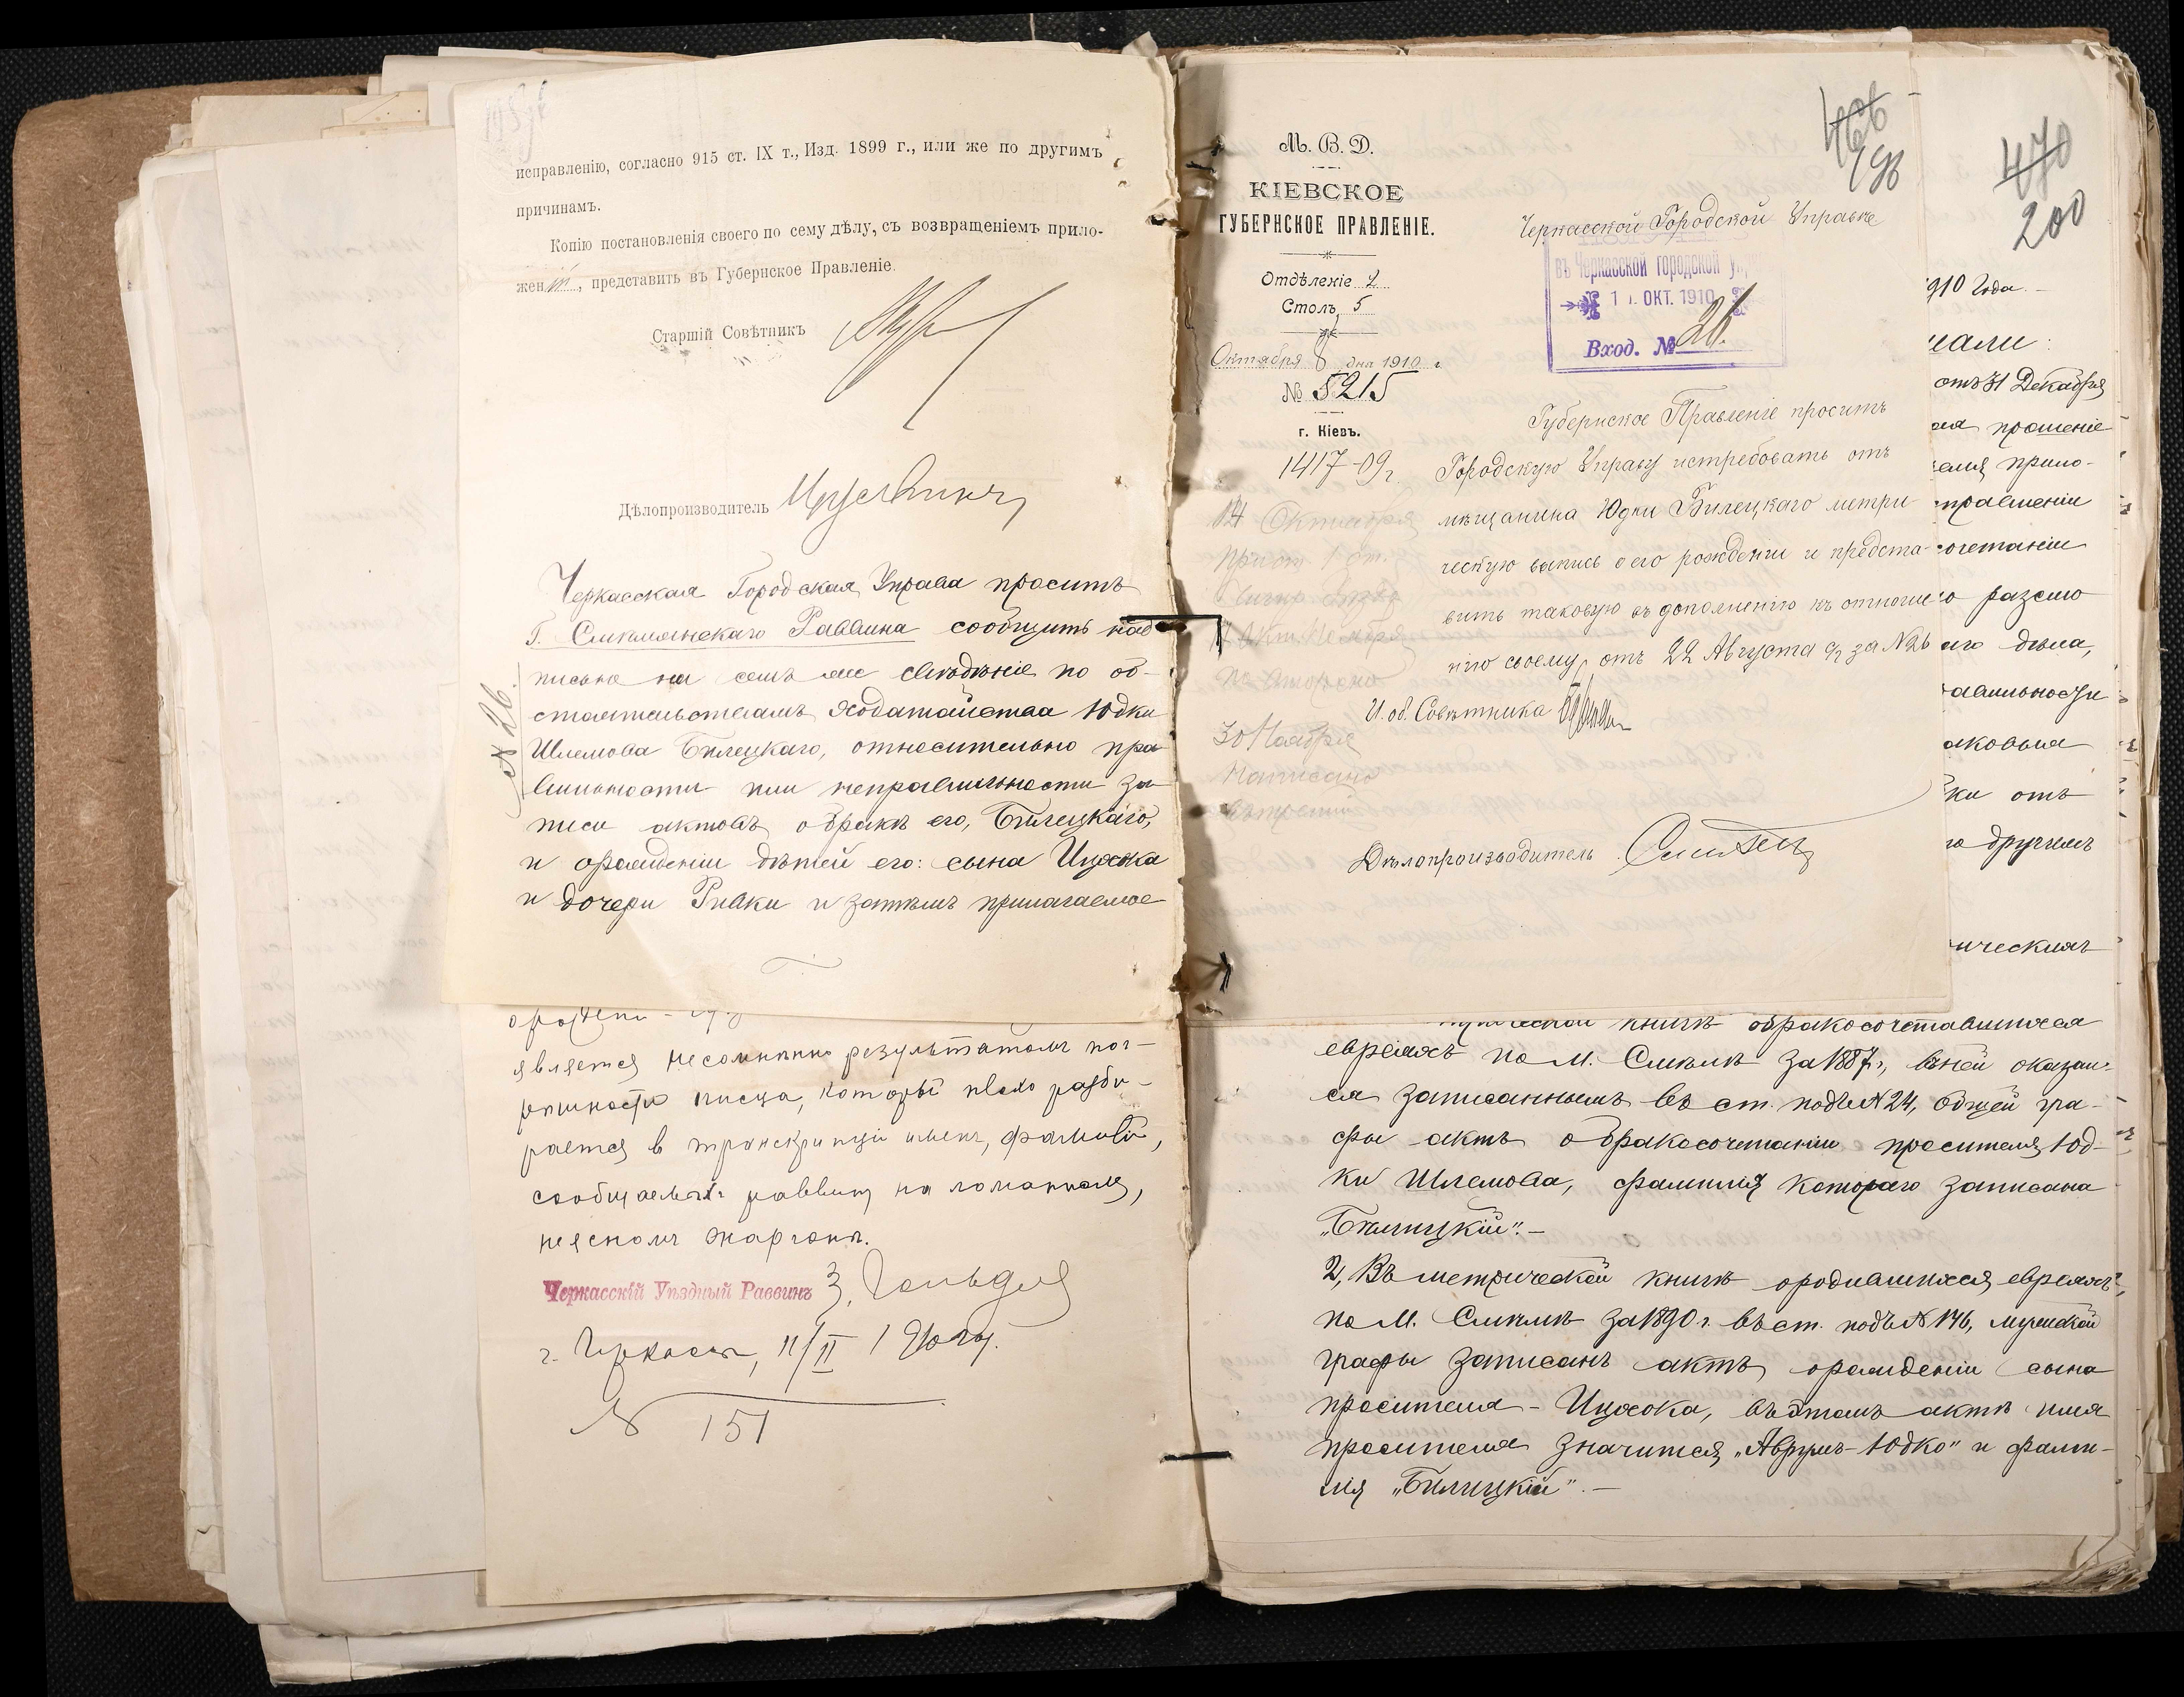 исправленію, согласно 915 ст. IX т., Изд. 1899 г., или же по другимъ
причинамъ.
Копію постановленія своего по сему дѣлу, съ возвращеніемъ прило-
жен , представить въ Губернское Правленіе.
Старшій Совѣтникъ
Дѣлопроизводитель
Черкасская Городская Управа проситъ
Г. Смѣлянскаго Раввина сообщить над
писью на семъ же свѣдѣніе по об-
стоятельствамъ ходатайства Юдки
Шлемова Билецкаго, относительно пра
вильности или неправильности за
писи актовъ о бракѣ его, Билецкаго,
и орожденіи дѣтей его: сына Ицхока
и дочери Ривки и затѣмъ прилагаемое
№ 26.
является несомнѣнно результатомъ пог-
рѣшности писца, который плохо разби-
рается в транскрипціи именъ, фамилій,
сообщаемыхъ раввину на ломанномъ,
неясномъ жаргонѣ.
Черкасскій Уѣздный Раввинъ З.
г. Черкассы, 11/II 19 году.
№ 151
М. В. Д.
КІЕВСКОЕ
ГУБЕРНСКОЕ ПРАВЛЕНІЕ.
Отдѣленіе 2
Столъ 5
Октября 8 дня 1910 г.
№ 5215
г. Кіевъ.
1417-09 г.
14 Октября
30 Ноября
Написано
466
198
Черкасской Городской Управѣ
въ Черкасской городской
ОКТ. 1910
Вход. № 26.
Губернское Правленіе проситъ
Городскую Управу истребовать отъ
мѣщанина Юдки Билецкаго метри
ческую выпись о его рожденіи и предста-
вить таковую въ дополненію къ отноше
нію своему, отъ 22 Августа за № 26
И. об. Совѣтника
Дѣлопроизводитель
470
200
910 Года.
отъ 31 Декабря
прошеніе
прило-
сочетаніи
разсмо
дѣла,
отъ
другимъ
книгѣ обракосочетавшихся
евреяхъ по М. Смѣлѣ за 1887 г., въней оказал-
ся записаннымъ въ ст. подъ № 24, общей гра-
фы актъ о бракосочетаніи просителя Юд-
ки Шлемова, фамилія котораго записана
„Бѣлицкій". —
2, Въ метрической книгѣ ородившихся евреяхъ,
по М. Смѣлѣ за 1890 г. въ ст. подъ № 146, мужской
графы записанъ актъ орожденіи сына
просителя - Ицхока, въэтомъ актѣ имя
просителя значится „Аврумъ-Юдко" и фами-
лія „Билицкій". —